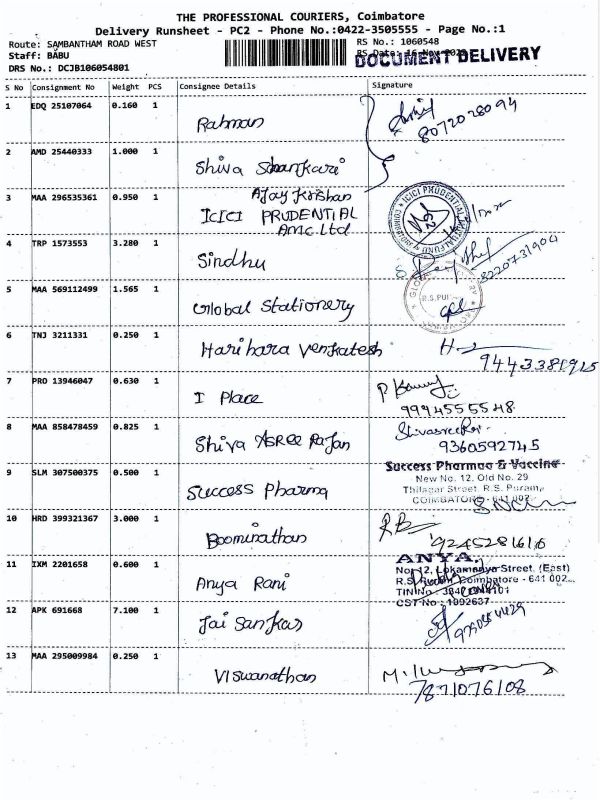 THE PROFESSIONAL COURIERS, Coimbatore
Delivery Runsheet - PC2 - Phone No.:0422-3505555 - Page No.:1
Route: SAMBANTHAM ROAD WEST
RS No.: 1060548
Staff: BABU
RS Date: 16 Nov
DOCUMENT DELIVERY
DRS No.: DCJB106054801
S No Consignment No Weight PCS Consignee Details Signature
1 EDQ 25107064 0.160 1 Rahman
8072028094
2 AMD 25440333 1.000 1 Shiva Shankari
3 MAA 296535361 0.950 1 Ajay Krishan
ICICI PRUDENTIAL
AMC Ltd
4 TRP 1573553 3.280 1 Sindhu
8220731904
5 MAA 569112499 1.565 1 Global Stationery
R.S.PU
6 TNJ 3211331 0.250 1 Harihara Venkatesh
9443381925
7 PRO 13946047 0.630 1 I Place
9994555548
8 MAA 858478459 0.825 1 Shiva ASREE Rajan
9360592745
Success Pharmaa & Vaccine
New No. 12, Old No. 29
9 SLM 307500375 0.500 1 Success Pharma
Thilagar Street, R.S. Puram,
COIMBATORE - 641 002
10 HRD 399321367 3.000 1 Boominathan
9245281616
ANYA,
11 IXM 2201658 0.600 1 Anya Rani
No. 12, Lokamanya Street, (East)
R.S. Puram, Coimbatore - 641 002
TIN No
CST No : 1092637
12 APK 691668 7.100 1 Jai Sankar
13 MAA 295009984 0.250 1 Viswanathan
7871076108